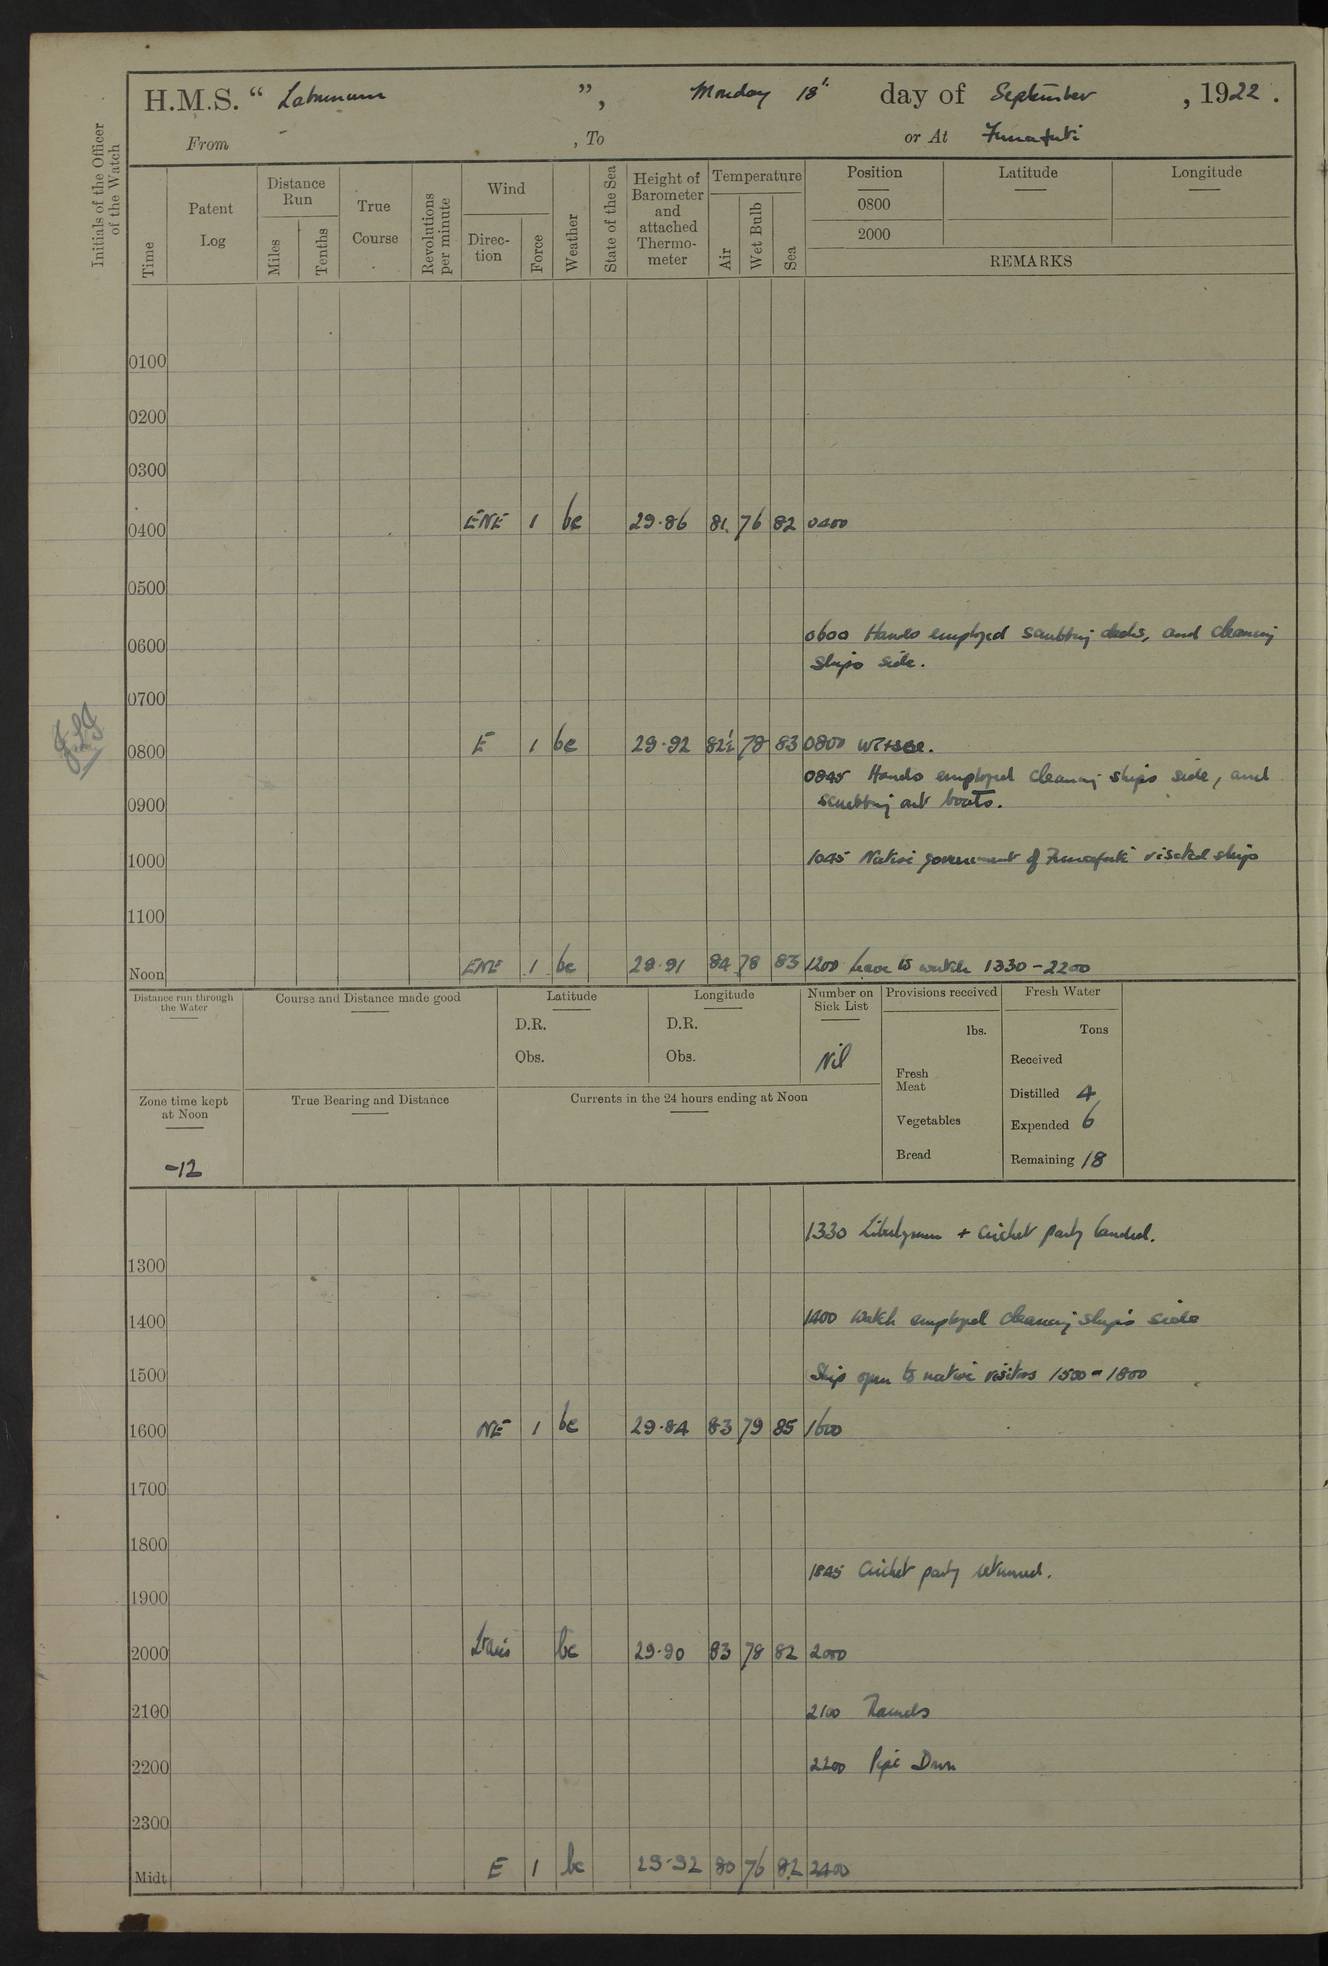 H.M.S. “ Laburnum ”, Monday 18th day of September , 1922 .
From , To or At Funafuti
Initials of the Officer of the Watch
Time
Patent Log
Distance Run
Miles
Tenths
True Course
Revolutions per minute
Wind
Direc-tion
Force
Weather
State of the Sea
Height of Barometer and attached Thermo-meter
Temperature
Air
Wet Bulb
Sea
Position
0800
2000
Latitude
Longitude
REMARKS
0100
0200
0300
0400 ENE 1 bc 29.86 81 76 82 0400
0500
0600 0600 Hands employed scrubbing decks, and cleaning
ships side.
0700
0800 E 1 bc 29.92 82½ 78 83 0800
0845 Hands employed cleaning ships side, and
0900 scrubbing out boats.
1000 1045 Native government of Funafuti visited ship
1100
Noon ENE 1 bc 29.91 84 78 83 1200 Leave to watch 1330 - 2200
Distance run through the Water
Course and Distance made good
Latitude
D.R.
Obs.
Longitude
D.R.
Obs.
Number on Sick List
Nil
Provisions received
lbs.
Fresh Meat
Vegetables
Bread
Fresh Water
Tons
Received
Distilled 4
Expended 6
Remaining 18
Zone time kept at Noon
-12
True Bearing and Distance
Currents in the 24 hours ending at Noon
1330 Libertymen + cricket party landed.
1300
1400 1400 Watch employed cleaning ship's side
1500 Ship open to native visitors 1500 - 1800
1600 NE 1 bc 29.84 83 79 85 1600
1700
1800
1845 Cricket party returned.
1900
2000 bc 29.90 83 78 82 2000
2100 2100 Rounds
2200 2200 Pipe Down
2300
Midt E 1 bc 29.92 80 76 82 2400